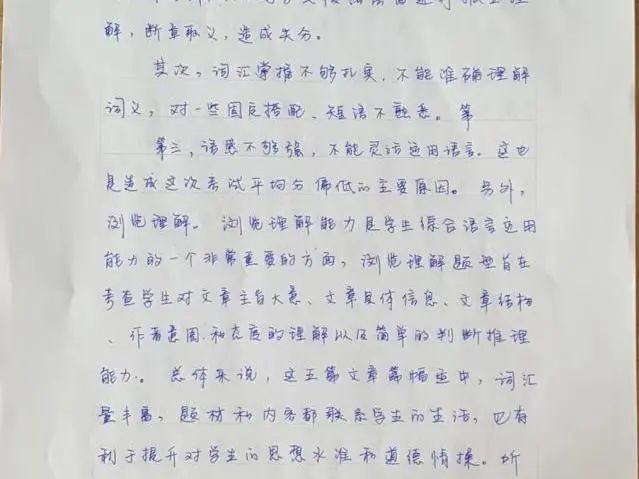 解，断章取义，造成失分。
其次，词汇掌握不够扎实，不能准确理解
词义，对一些固定搭配、短语不熟悉。第
第三，语感不够强，不能灵活运用语言。这也
是造成这次考试平均分偏低的主要原因。另外，
浏览理解。浏览理解能力是学生综合语言运用
能力的一个非常重要的方面，浏览理解题型旨在
考查学生对文章主旨大意、文章具体信息、文章结构
、作者意图和态度的理解以及简单的判断推理
能力。总体来说，这五篇文章篇幅适中，词汇
量丰富，题材和内容都联系学生的生活，也有
利于提升对学生的思想水准和道德情操。所